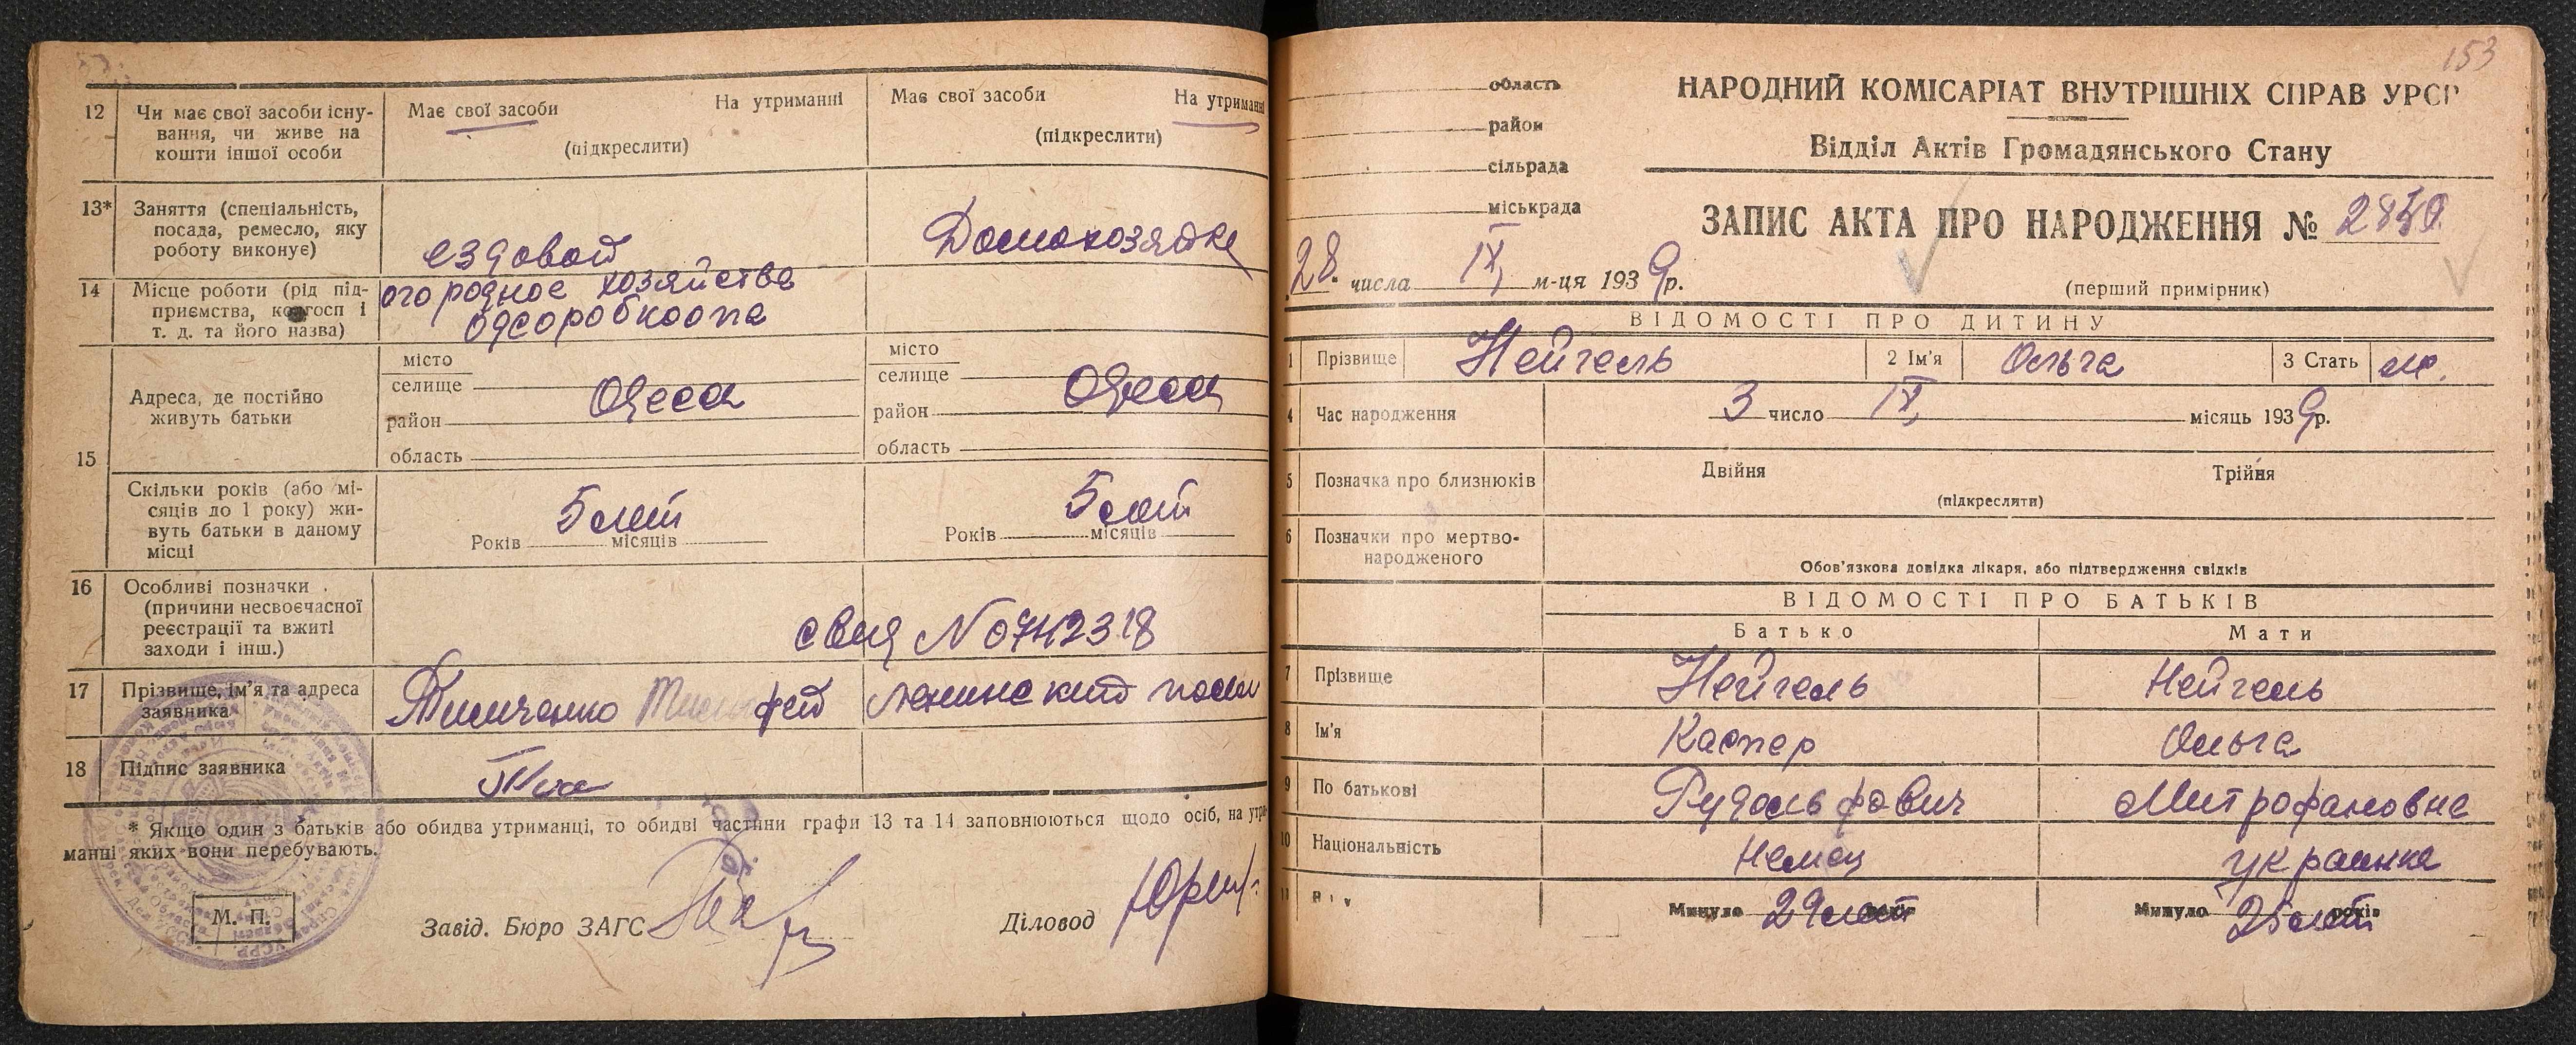 12 Чи має свої засоби існу-
вання, чи живе на
кошти іншої особи
Має свої засоби На утриманні
(підкреслити)
Має свої засоби На утриманні
(підкреслити)
13* Заняття (спеціальність,
посада, ремесло, яку
роботу виконує)
ездовой
Домохозяйка
14 Місце роботи (рід під-
приємства, колгосп і
т. д. та його назва)
огородное хозяйства
Одесоробкоопа
15
Адреса, де постійно
живуть батьки
місто
селище
район
область
Одеса
місто
селище
район
область
Одеса
Скільки років (або мі-
сяців до 1 року) жи-
вуть батьки в даному
місці
5 лет
Років місяців
5 лет
Років місяців
16 Особливі позначки
(причини несвоєчасної
реєстрації та вжиті
заходи і інш.)
17 Прізвище, ім'я та адреса
заявника
Ленинский
18 Підпис заявника
* Якщо один з батьків або обидва утриманці, то обидві частини графи 13 та 14 заповнюються щодо осіб, на утри-
манні яких вони перебувають.
М. П.
Завід. Бюро ЗАГС
Діловод
153
область
район
сільрада
міськрада
НАРОДНИЙ КОМІСАРІАТ ВНУТРІШНІХ СПРАВ УРСР
Відділ Актів Громадянського Стану
ЗАПИС АКТА ПРО НАРОДЖЕННЯ №
28 числа IX м-ця 1939р.
(перший примірник)
ВІДОМОСТІ ПРО ДИТИНУ
1 Прізвище Нейгель 2 Ім'я Ольга 3 Стать
4 Час народження 3 число IX місяць 1939р.
5 Позначка про близнюків Двійня Трійня
(підкреслити)
6 Позначки про мертво-
народженого
Обов'язкова довідка лікаря, або підтвердження свідків
ВІДОМОСТІ ПРО БАТЬКІВ
Батько Мати
7 Прізвище Нейгель Нейгель
8 Ім'я Каспер Ольга
9 По батькові Рудольфович Митрофановна
10 Національність Немец украинка
11 Минуло 29 лет років Минуло 25 лет років